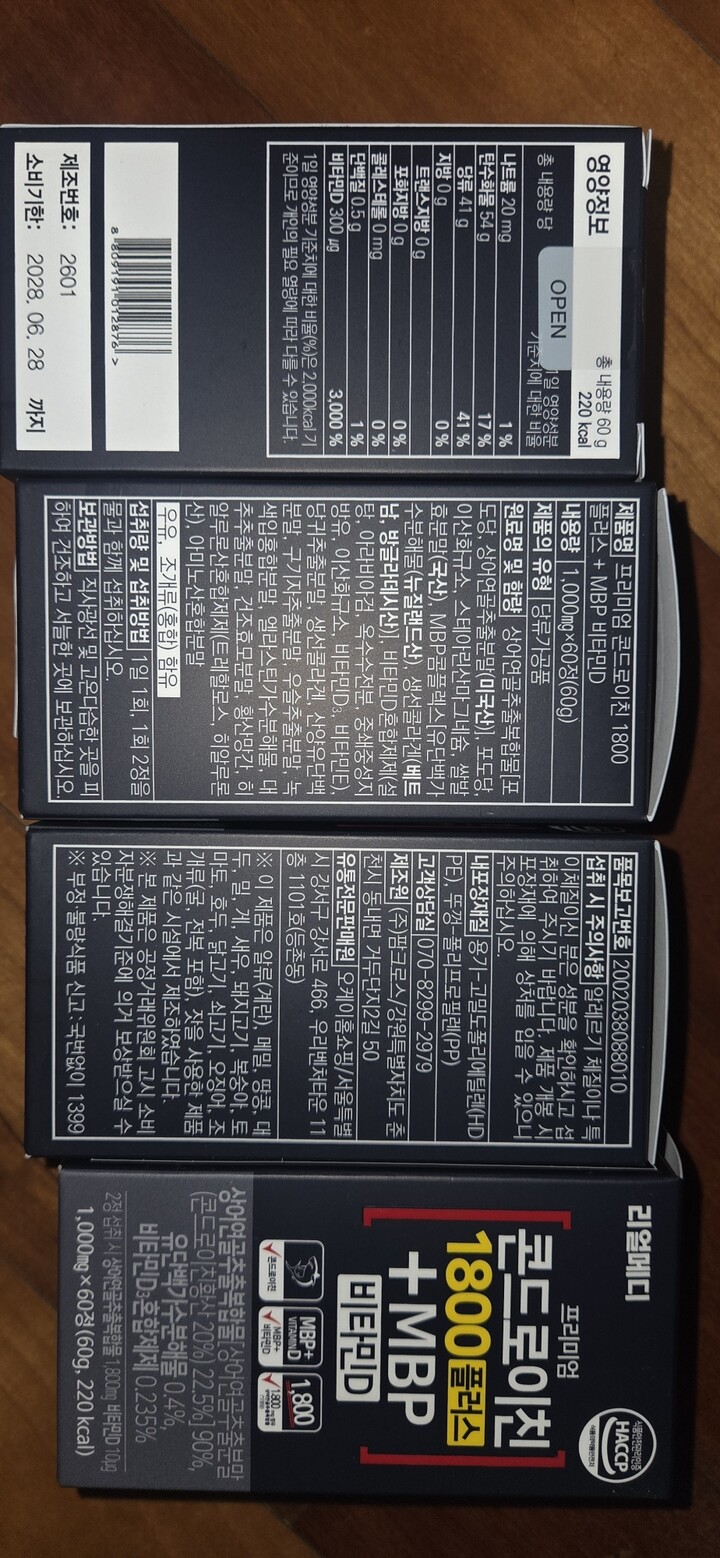 영양정보
총 내용량 60 g
220 kcal
총 내용량 당
1일 영양성분
기준치에 대한 비율
OPEN
나트륨 20 mg 1 %
탄수화물 54 g 17 %
당류 41 g 41 %
지방 0 g 0 %
트랜스지방 0 g
포화지방 0 g 0 %
콜레스테롤 0 mg 0 %
단백질 0.5 g 1 %
비타민D 300 μg 3,000 %
1일 영양성분 기준치에 대한 비율(%)은 2,000kcal 기
준이므로 개인의 필요 열량에 따라 다를 수 있습니다.
8 809191 012876 >
제조번호: 2601
소비기한: 2028. 06. 28 까지
제품명 프리미엄 콘드로이친 1800
플러스 + MBP 비타민D
내용량 1,000mg×60정(60g)
제품의 유형 당류가공품
원료명 및 함량 상어연골추출복합물[포
도당, 상어연골추출분말(미국산)], 포도당,
이산화규소, 스테아린산마그네슘, 쌀발
효분말(국산), MBP콤플렉스유단백가
수분해물(뉴질랜드산), 생선콜라겐(베트
남, 방글라데시산), 비타민D혼합제제(설
탕, 아라비아검, 옥수수전분, 중쇄중성지
방유, 이산화규소, 비타민D₃, 비타민E),
당귀추출분말, 생선콜라겐, 산양유단백
분말, 구기자추출분말, 우슬추출분말, 녹
색입홍합분말, 엘라스틴가수분해물, 대
추추출분말, 건조효모분말, 황산마그네슘, 히
알루론산혼합제제(트레할로스, 히알루론
산), 아미노산혼합분말
우유, 조개류(홍합) 함유
섭취량 및 섭취방법 1일 1회, 1회 2정을
물과 함께 섭취하십시오.
보관방법 직사광선 및 고온다습한 곳을 피
하여 건조하고 서늘한 곳에 보관하십시오.
품목보고번호 20020380808010
섭취 시 주의사항 알레르기 체질이나 특
이체질이신 분은 성분을 확인하시고 섭
취하여 주시기 바랍니다. 제품 개봉 시
포장재에 의해 상처를 입을 수 있으니
주의하십시오.
내포장재질 용기-고밀도폴리에틸렌(HD
PE), 뚜껑-폴리프로필렌(PP)
고객상담실 070-8299-2979
제조원 (주)팜크로스/강원특별자치도 춘
천시 동내면 거두단지2길 50
유통전문판매원 오케이홈쇼핑/서울특별
시 강서구 강서로 466, 우리벤처타운 11
층 1101호(등촌동)
※ 이 제품은 알류(계란), 메밀, 땅콩, 대
두, 밀, 게, 새우, 돼지고기, 복숭아, 토
마토, 호두, 닭고기, 쇠고기, 오징어, 조
개류(굴, 전복 포함), 잣을 사용한 제품
과 같은 시설에서 제조하였습니다.
※ 본 제품은 공정거래위원회 고시 소비
자분쟁해결기준에 의거 보상받으실 수
있습니다.
※ 부정·불량식품 신고 : 국번없이 1399
리얼메디
HACCP
프리미엄
콘드로이친
1800 플러스
+ MBP
비타민D
콘드로이친
MBP+
VITAMIN D
MBP+
비타민D
1,800
상어연골추출복합물[상어연골추출분말
(콘드로이친황산 20%) 22.5%] 90%,
유단백가수분해물 0.4%,
비타민D₃혼합제제 0.235%
2정 섭취 시 상어연골추출복합물 1,800mg 비타민D 10μg
1,000mg × 60정(60g, 220 kcal)